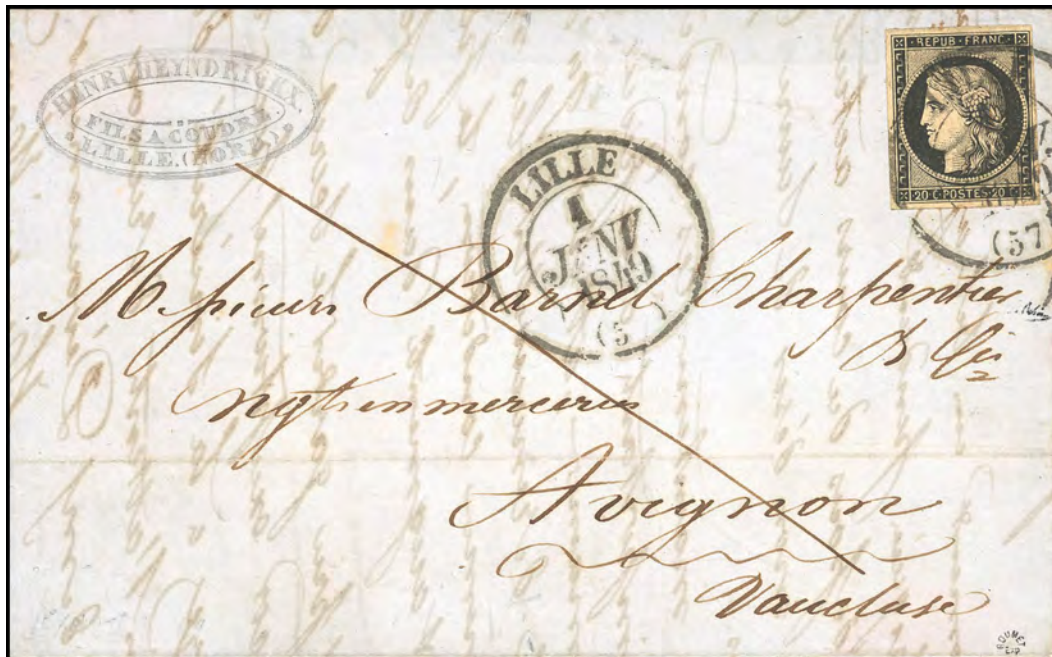 HENRI HEYNDRICKX.
FILS A COUDRE
LILLE.(NORD)
REPUB·FRANC·
20·C·POSTES·20·C
(57)
LILLE
1
JANV
1849
(57)
Messieurs Charpentier
& Cie
ngts en merceries
Avignon
Vaucluse
ROUMET
EXP